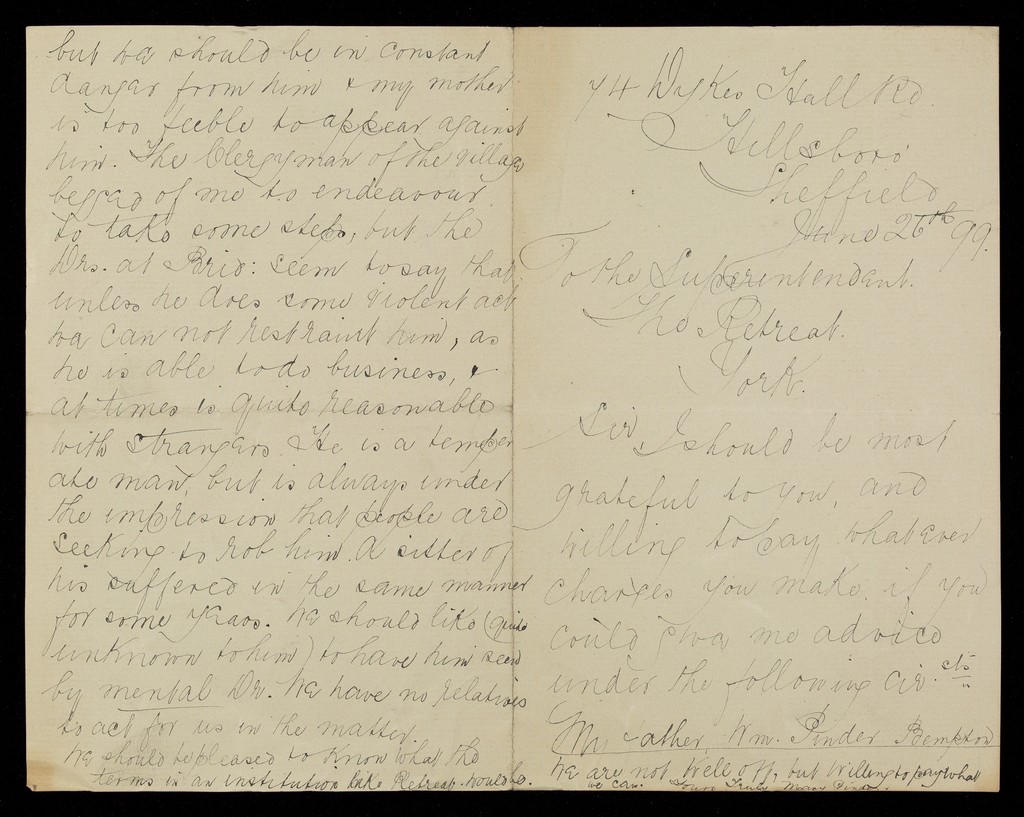 74 Dykes Hall Rd.
Hillsboro'
Sheffield
June 26th 99.
To the Superintendent.
The Retreat.
York.
Sir, I should be most
grateful to you, and
willing to pay whatever
charges you make, if you
could give me advice
under the following cir.cts
My father, Wm. Pinder Bempton
but we should be in constant
danger from him & my mother
is too feeble to appear against
him. The Clergyman of the village
begged of me to endeavour
to take some steps, but the
Drs. at Brid: seem to say that
unless he does some violent act
we can not restraint him, as
he is able to do business, &
at times is quite reasonable
with strangers. He is a temper
ate man, but is always under
the impression that people are
seeking to rob him. A sister of
his suffered in the same manner
for some years. We should like (quite
unknown to him) to have him seen
by mental Dr. We have no relatives
to act for us in the matter.
We should be pleased to know what the
terms in an institution like Retreat would be.
We are not well off, but willing to pay what
we can. Yours Truly Mary Pinder.